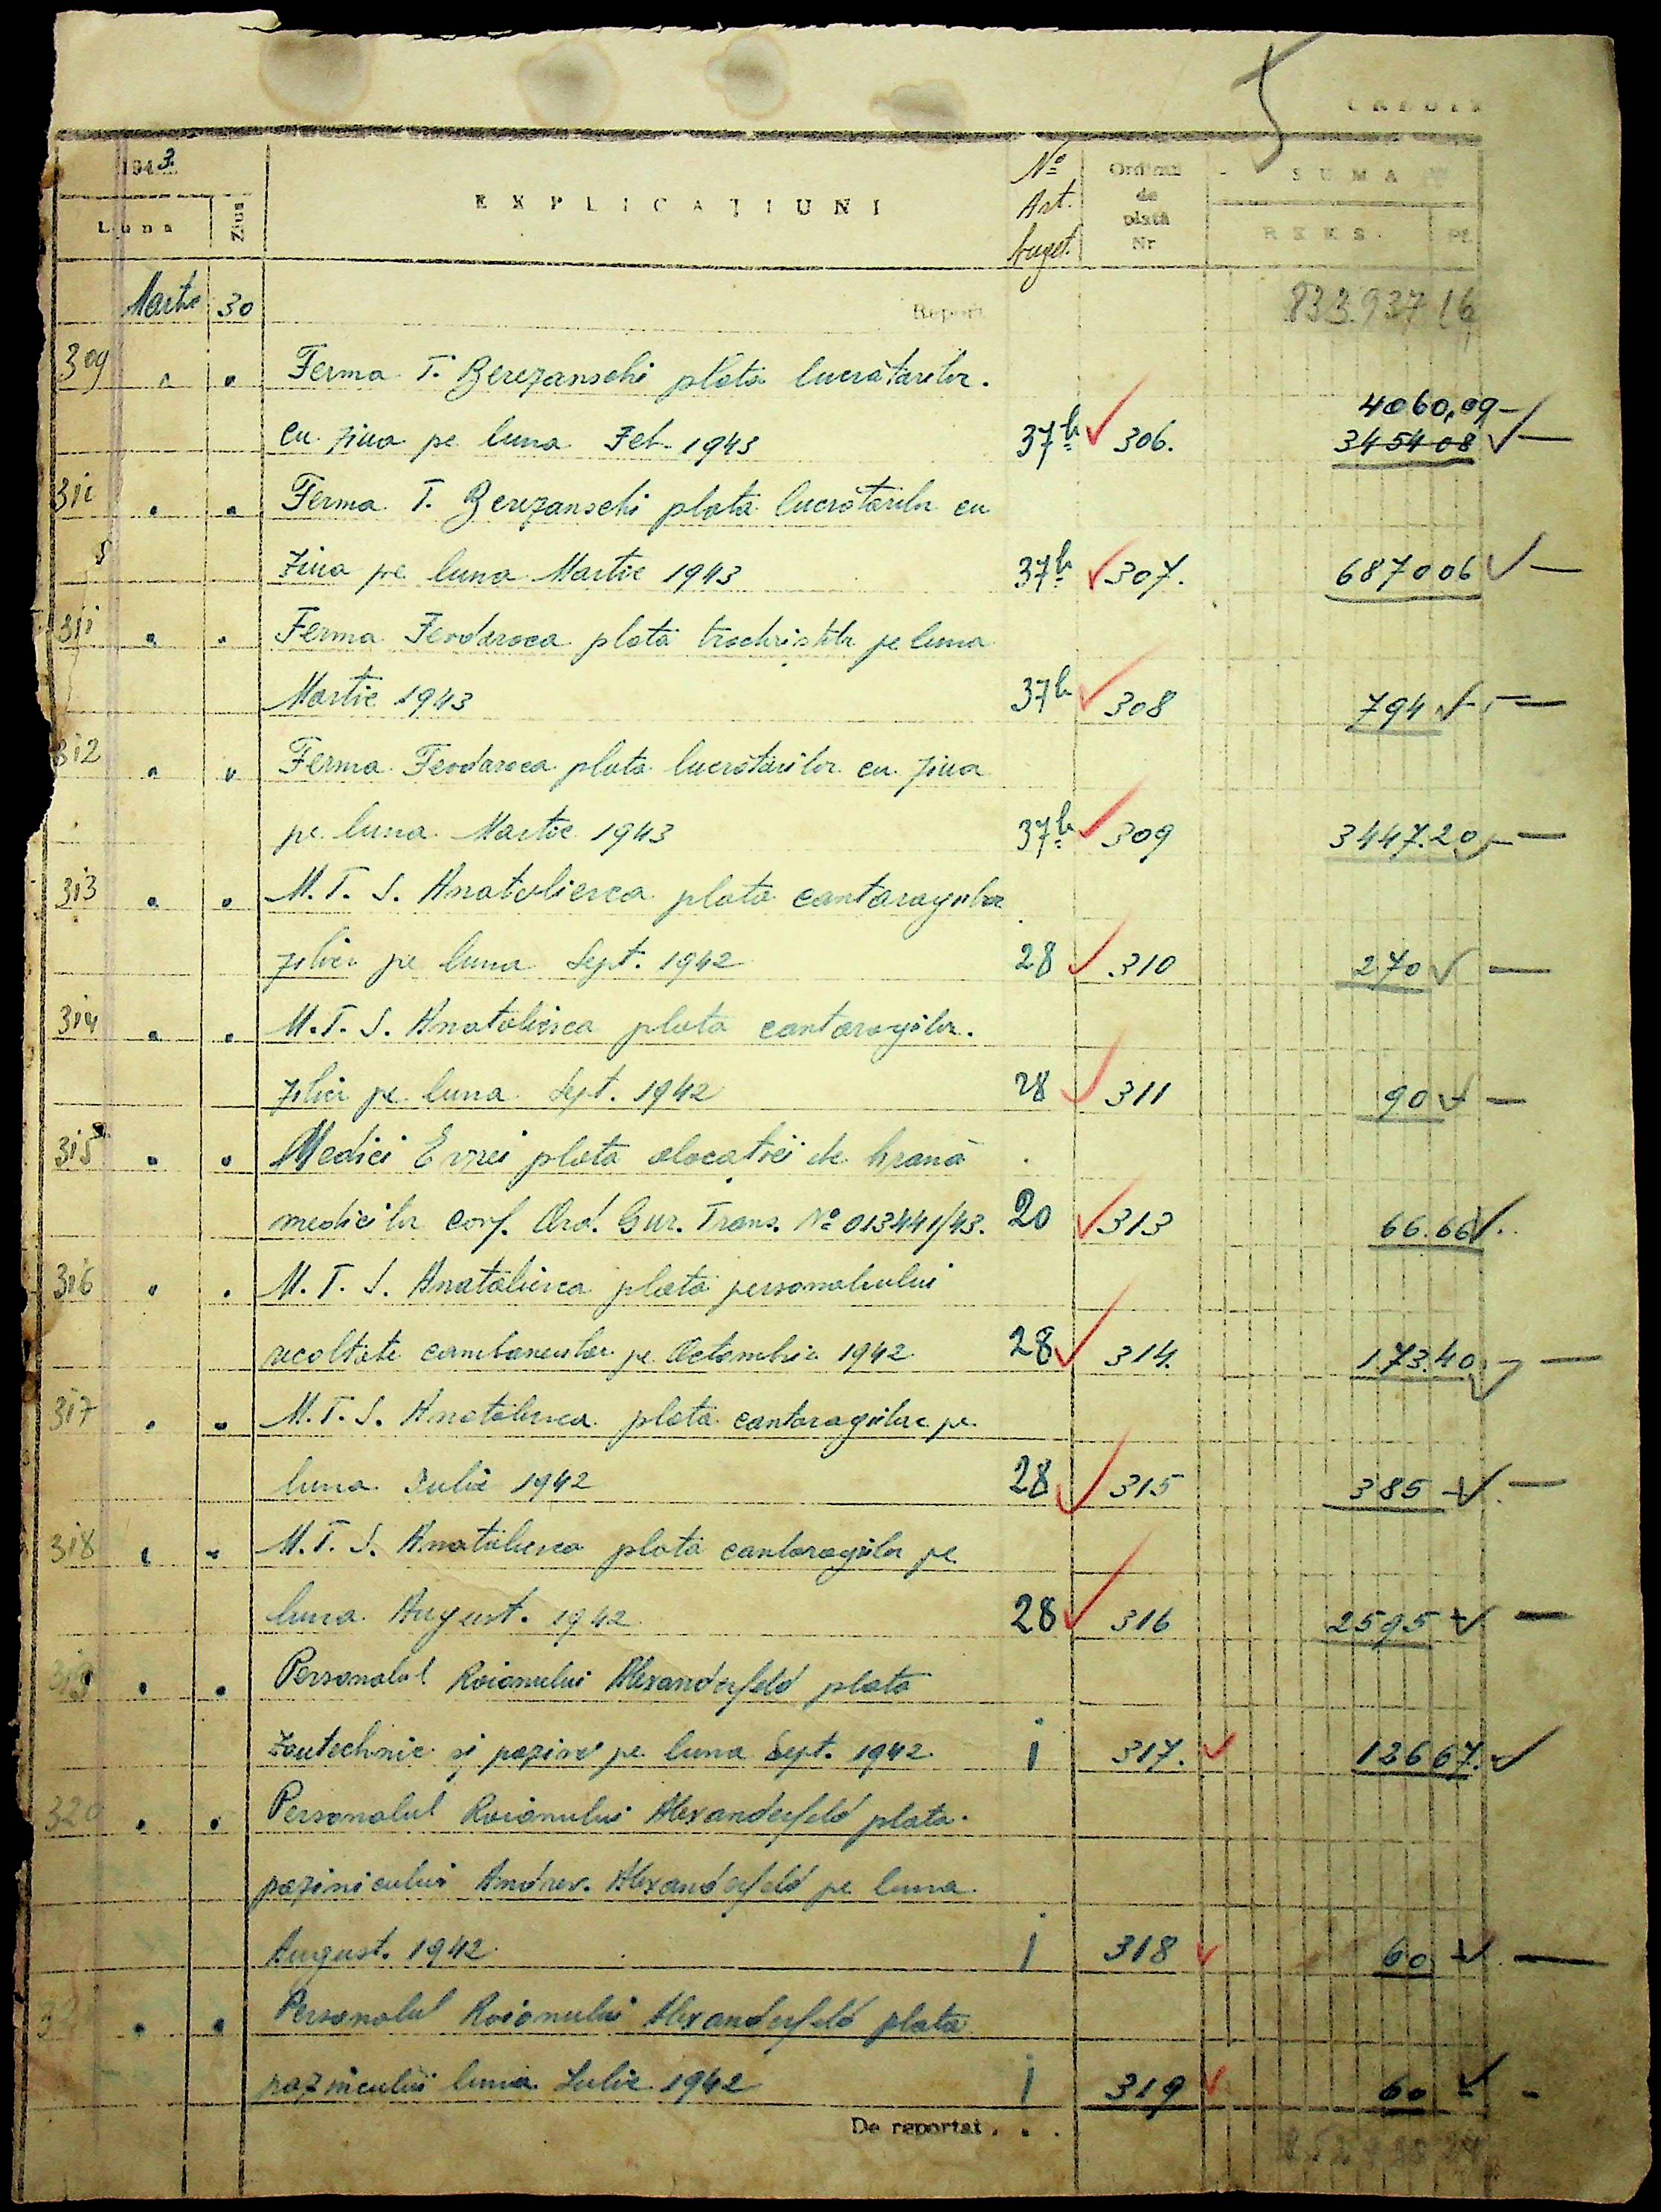 CREDIT
1943.
Luna Ziua EXPLICAȚIUNI No Art. buget. Ordinul de plată Nr SUMA RKKS. Pf.
Martie 30 Report 833.937 16
309 " " Ferma T. Berezanschi plata lucrătorilor.
4060,09 -
cu ziua pe luna Feb. 1943 37b 306. 345408
" " Ferma T. Berezanschi plata lucrătorilor cu
ziua pe luna Martie 1943 37b 307. 687006
311 " " Ferma Feodaroca plata tractoriștilor pe luna
Martie 1943 37b 308 794
312 " " Ferma Feodaroca plata lucrătorilor cu ziua
pe luna Martie 1943 37b 309 3447.20
313 " " M.T.S. Anatolievca plata cantaragiilor
zilieri pe luna Sept. 1942 28 310 270
314 " " M.T.S. Anatolievca plata cantaragiilor.
zilieri pe luna Sept. 1942 28 311 90
315 " " Medici Evrei plata alocației de hrană
medicilor conf. Ord. Guv. Trans. No 013441/43. 20 313 66.66
316 " " M.T.S. Anatolievca plata personalului
recoltate combainerilor pe Octombrie 1942 28 314. 173.40
317 " " M.T.S. Anatolievca plata cantaragiilor pe
luna Iulie 1942 28 315 385
318 " " M.T.S. Anatolievca plata cantaragiilor pe
luna August. 1942 28 316 2595
319 " " Personalul Raionului Alexanderfeld plata
zoutechnic și paznic pe luna Sept. 1942 1 317. 12667.
320 " " Personalul Raionului Alexanderfeld plata
paznicului Andrev. Alexanderfeld pe luna
August. 1942 1 318 60
" " Personalul Raionului Alexanderfeld plata
paznicului luna Iulie 1942 1 319 60
De reportat . . .